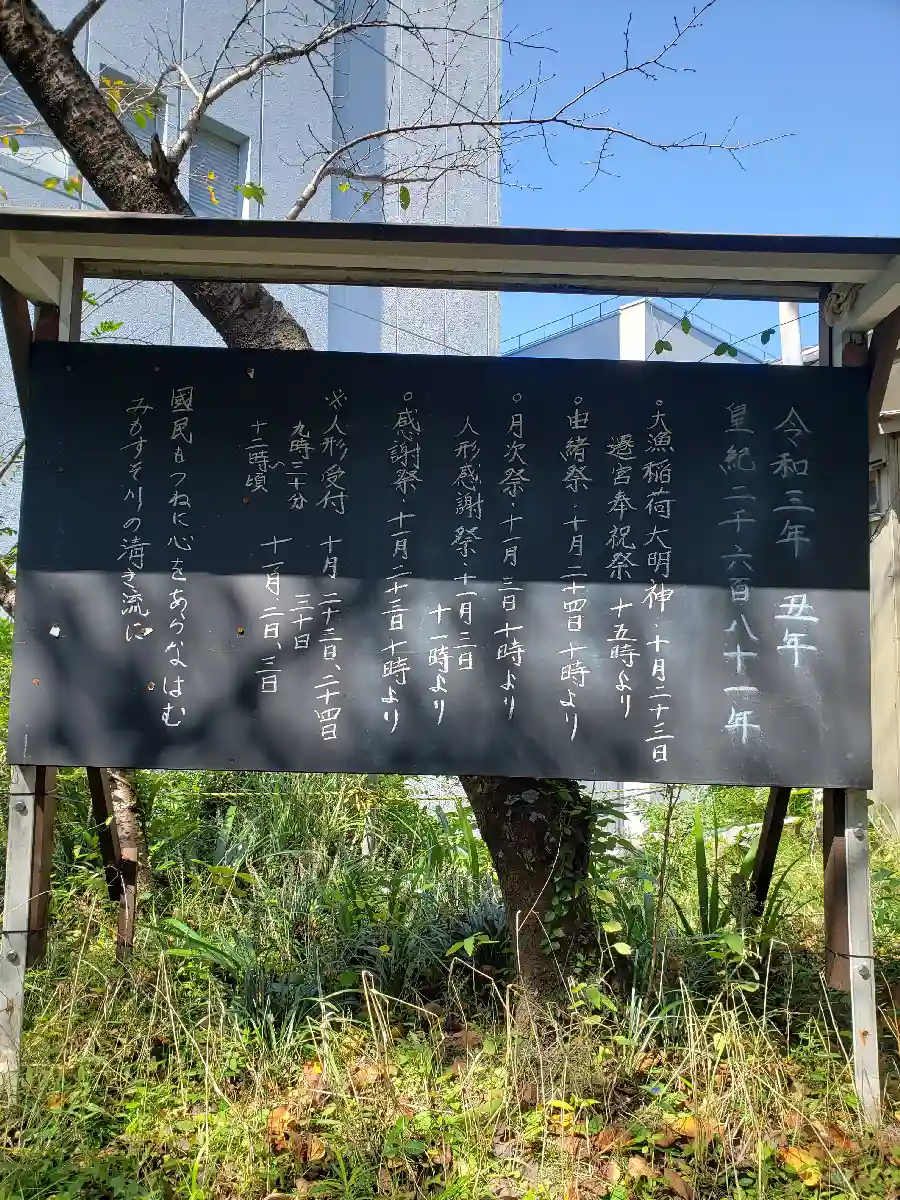 令和三年 丑年
皇紀二千六百八十一年
○大漁稲荷大明神・十月二十三日
遷宮奉祝祭 十五時より
○由緒祭・十月二十四日十時より
○月次祭・十一月三日十時より
人形感謝祭・十一月三日
十一時より
○感謝祭 十一月二十三日十時より
※人形受付 十月二十三日、二十四日
九時三十分 三十日
〜
十二時頃 十一月二日、三日
國民もつねに心をあらなはむ
みもすそ川の清き流に